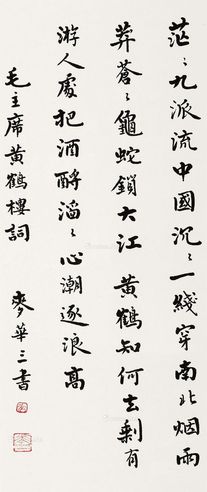 茫〻九派流中國沉〻一綫穿南北烟雨
莽蒼〻龜蛇鎖大江黄鶴知何去剩有
游人處把酒酹滔〻心潮逐浪高
毛主席黄鶴樓詞
麥華三書